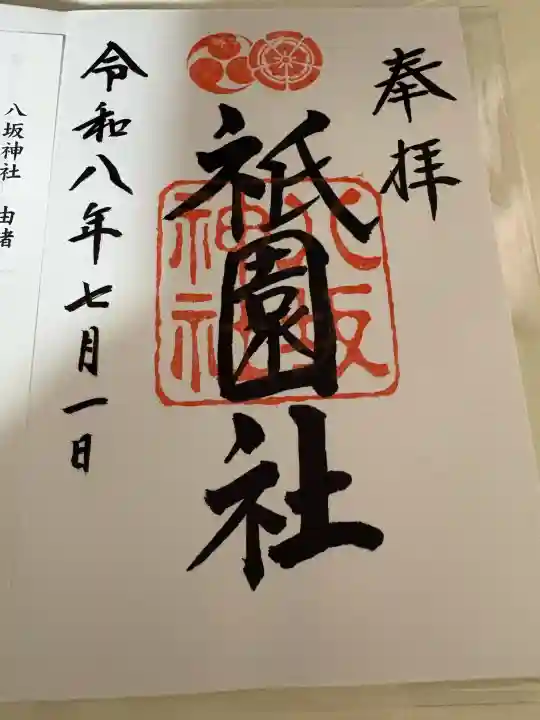 奉拝
祇園社
八坂
神社
令和八年七月一日
八坂神社 由緒